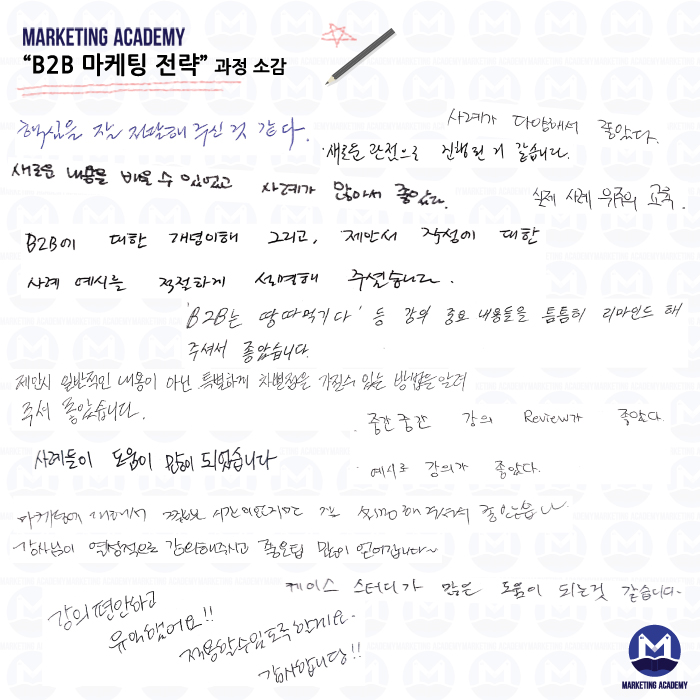 MARKETING ACADEMY
“B2B 마케팅 전략” 과정 소감
핵심을 잘 전달해 주신 것 같다.
사례가 다양해서 좋았다.
·새로운 관점으로 진행된 거 같습니다.
새로운 내용을 배울 수 있었고 사례가 많아서 좋았다.
실제 사례 위주의 교육.
B2B에 대한 개념이해 그리고, 제안서 작성에 대한
사례 예시를 적절하게 설명해 주셨습니다.
'B2B는 땅따먹기다' 등 강의 중요 내용들을 틈틈히 리마인드 해
주셔서 좋았습니다.
제안시 일반적인 내용이 아닌 특별하게 차별점을 가질수 있는 방법을 알려
주셔 좋았습니다.
중간중간 강의 Review가 좋았다.
사례들이 도움이 많이 되었습니다
· 예시로 강의가 좋았다.
마케팅에 대해서 짧은 시간이었지만 잘 설명해주셔서 좋았습니다
강사님이 열성적으로 강의해주시고 좋은팁 많이 얻어갑니다~
케이스 스터디가 많은 도움이 되는것 같습니다.
강의 편안하고
유익했어요!!
적용할수있도록 할게요.
감사합니당!!
MARKETING ACADEMY